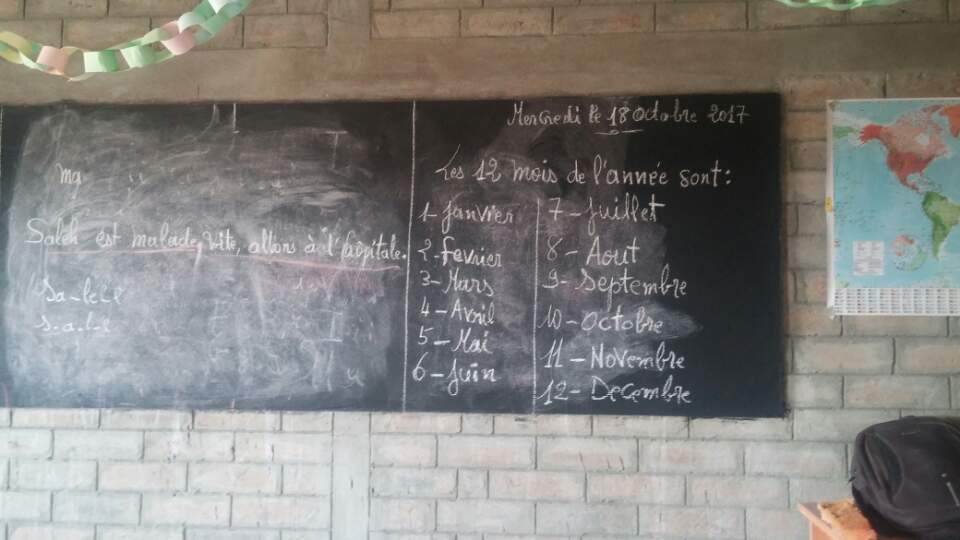 Ma
Saleh est malade, vite, allons à l'hôpitale.
Sa-le
s-a-l-e
Mercredi le 18 Octobre 2017
Les 12 mois de l'année sont:
1- Janvier
2- Fevrier
3- Mars
4- Avril
5- Mai
6- Juin
7- Juillet
8- Aout
9- Septembre
10- Octobre
11- Novembre
12- Decembre